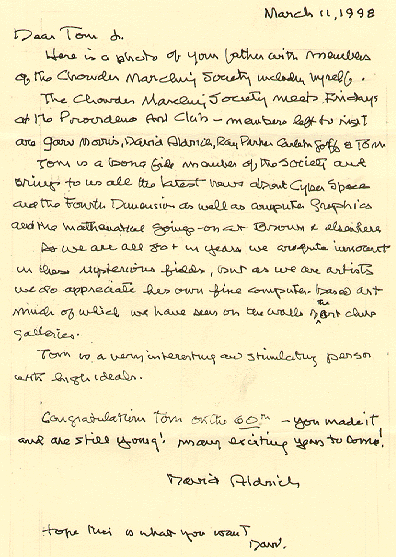 March 11, 1998
Dear Tom Jr.
Here is a photo of your father with members
of the Chowder Marching Society including myself.
The Chowder Marching Society meets Fridays
at the Providence Art Club - members left to right
are Gary Morris, David Aldrich, Ray Parker, Carleton Goff & Tom
Tom is a bona fide member of the Society and
brings to us all the latest news about Cyber Space
and the Fourth Dimension as well as computer graphics
and the mathematical goings-on at Brown & elsewhere
As we are all 80+ in years we are quite innocent
in these mysterious fields, but as we are artists
we do appreciate his own fine computer-based art
much of which we have seen on the walls of the Art Club
galleries.
Tom is a very interesting and stimulating person
with high ideals.
Congratulations Tom on the 60th - you made it
and are still young! many exciting years to come!
David Aldrich
Hope this is what you want